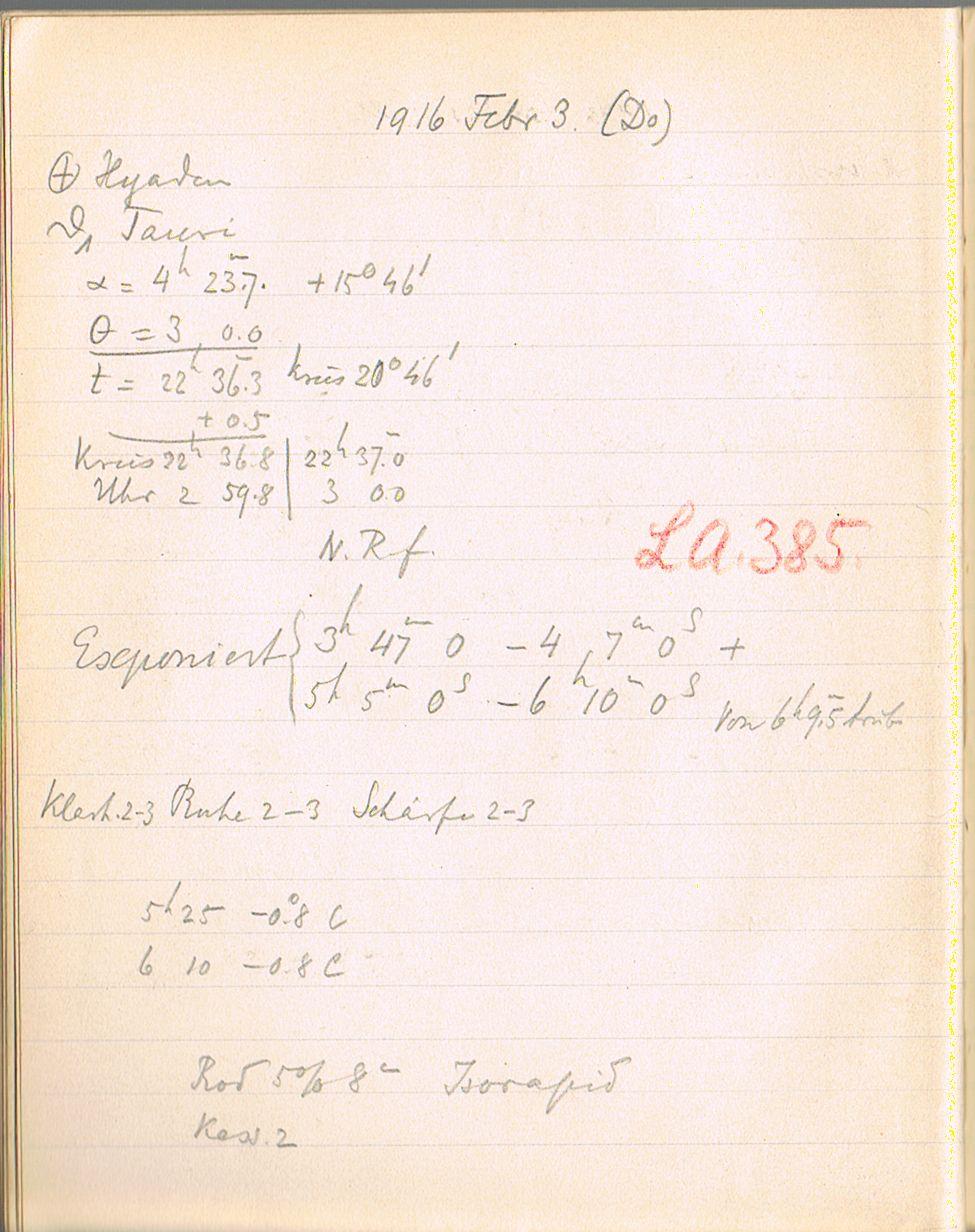 1916 Febr 3. (Do)
⊕ Hyaden
ϑ₁ Tauri
α = 4ʰ 23ᵐ.7. +15° 46'
Θ = 3 0.0
t = 22ʰ 36ᵐ.3 Kreis 20° 46'
+ 0.5
Kreis 22ʰ 36.8 | 22ʰ 37ᵐ.0
Uhr 2 59.8 | 3 0.0
N. R. f.
LA. 385.
Exponiert { 3ʰ 47ᵐ 0 – 4 7ᵐ 0ˢ +
5ʰ 5ᵐ 0ˢ – 6ʰ 10ᵐ 0ˢ Von 6ʰ 9ᵐ.5 trüb
Klarh. 2-3 Ruhe 2–3 Schärfe 2-3
5ʰ 25 –0°.8 C
6 10 –0.8 C
Rod 5% 8ᵐ Isorapid
Kass. 2